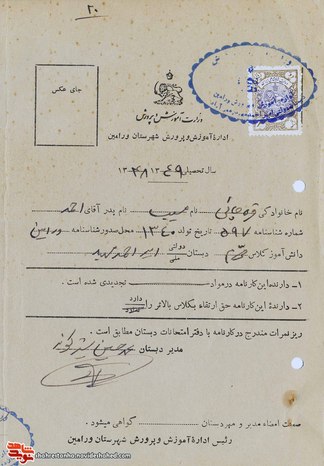 ۲۰
جای عکس
وزارت آموزش و پرورش
ادارهٔ آموزش و پرورش شهرستان ورامین
سال تحصیلی ۴۹ ۱۳ - ۴۸ ۱۳
نام خانوادگی نام حبیب نام پدر آقای احمد
شماره شناسنامه ۵۹۷ تاریخ تولد ۱۳۴۰ محل صدور شناسنامه ورامین
دانش آموز کلاس دبستان دولتی ملی
۱ - دارنده این کارنامه در مواد تجدیدی شده است .
۲ - دارنده این کارنامه حق ارتقاء بکلاس بالاتر را دارد ندارد
ریز نمرات مندرج در کارنامه با دفتر امتحانات دبستان مطابق است .
مدیر دبستان
صحت امضاء مدیر و مهر دبستان گواهی میشود .
رئیس ادارهٔ آموزش و پرورش شهرستان ورامین
shohrestanha.navideshahed.com